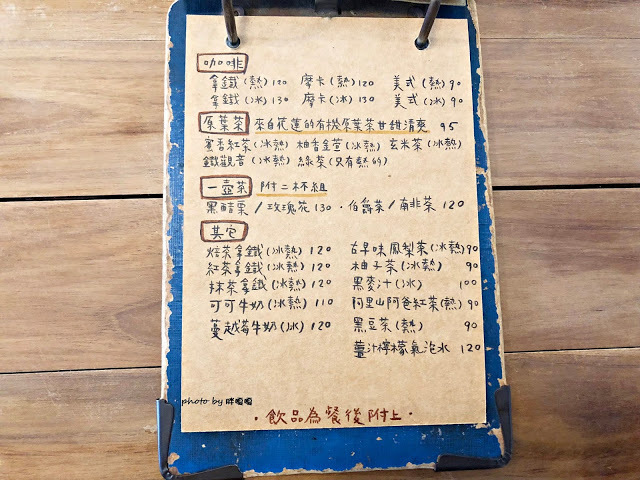 咖啡
拿鐵(熱)120 摩卡(熱)120 美式(熱)90
拿鐵(冰)130 摩卡(冰)130 美式(冰)90
原葉茶 來自花蓮的有機原葉茶甘甜清爽 95
蜜香紅茶(冰熱) 柚香金萱(冰熱) 玄米茶(冰熱)
鐵觀音(冰熱) 綠茶(只有熱的)
一壺茶 附二杯組
黑醋栗/玫瑰花130·伯爵茶/南非茶 120
其它
焙茶拿鐵(冰熱) 120 古早味鳳梨茶(冰熱)90
紅茶拿鐵(冰熱) 120 柚子茶(冰熱) 90
抹茶拿鐵(冰熱) 120 黑麥汁(冰) 100
可可牛奶(冰熱) 110 阿里山阿爸紅茶(熱) 90
蔓越莓牛奶(冰) 120 黑豆茶(熱) 90
薑汁檸檬氣泡水 120
photo by 胖嘟嘟
·飲品為餐後附上·